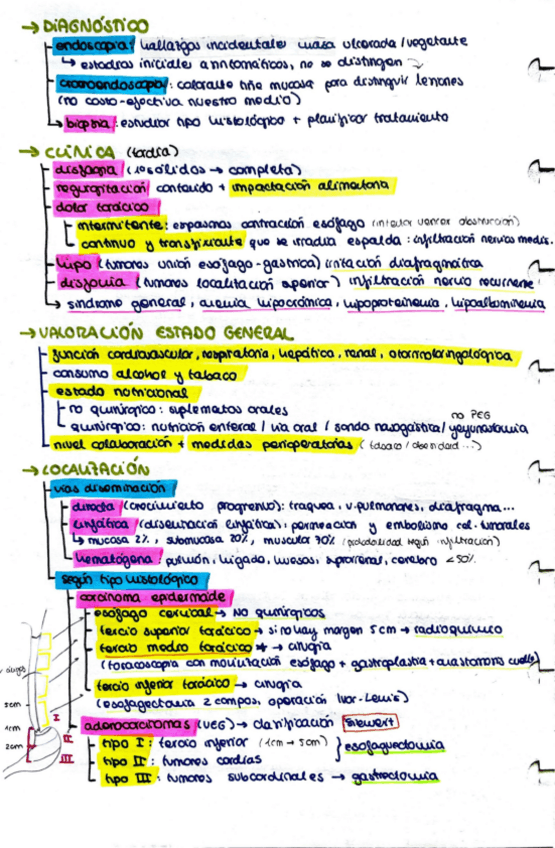 → DIAGNÓSTICO
endoscopia: hallazgos incidentales masa ulcerada / vegetante
↳ estadios iniciales asintomáticos, no se distingen
cromoendoscopia: colorante tiñe mucosa para distinguir lesiones
(no costo-efectiva nuestro medio)
biopsia: estudiar tipo histológico + planificar tratamiento
→ CLÍNICA (tardía)
disfagia (1º sólidos → completa)
regurgitación contenido + impactación alimentaria
dolor torácico
intermitente: espasmos contracción esófago (intentar vencer obstrucción)
continuo y transfixiante que se irradia espalda: infiltración nervios medias.
hipo (tumores unión esófago-gástrica) irritación diafragmática
disfonía (tumores localización superior) infiltración nervio recurrente
↳ síndrome general, anemia hipocrómica, hipoproteinemia, hipoalbuminemia
→ VALORACIÓN ESTADO GENERAL
función cardiovascular, respiratoria, hepática, renal, otorrinolaringológica
consumo alcohol y tabaco
estado nutricional
no quirúrgico: suplementos orales
no PEG
quirúrgico: nutrición enteral / vía oral / sonda nasogástrica / yeyunostomía
nivel colaboración + medidas perioperatorias (tabaco / obesidad ...)
→ LOCALIZACIÓN
vías diseminación
directa (crecimiento progresivo): tráquea, v. pulmonares, diafragma...
linfática (diseminación linfática), permeación y embolismo cel. tumorales
↳ mucosa 2%, submucosa 20%, muscular 30% (probabilidad según infiltración)
hematógena: pulmón, hígado, huesos, suprarrenal, cerebro <50%.
según tipo histológico
carcinoma epidermoide
esófago cervical → NO quirúrgicos
tercio superior torácico → si no hay margen 5cm → radioquimio
tercio medio torácico → cirugía
(toracoscopia con movilización esófago + gastroplastia + anastomosis cuello)
tercio inferior torácico → cirugía
(esofagectomía 2 campos, operación Ivor-Lewis)
adenocarcinomas (UEG) → clasificación Siewert
tipo I: tercio inferior (1cm → 5cm)
tipo II: tumores cardias
esofaguectomía
tipo III: tumores subcardinales → gastrectomía
5cm
1cm
2cm
I
II
III